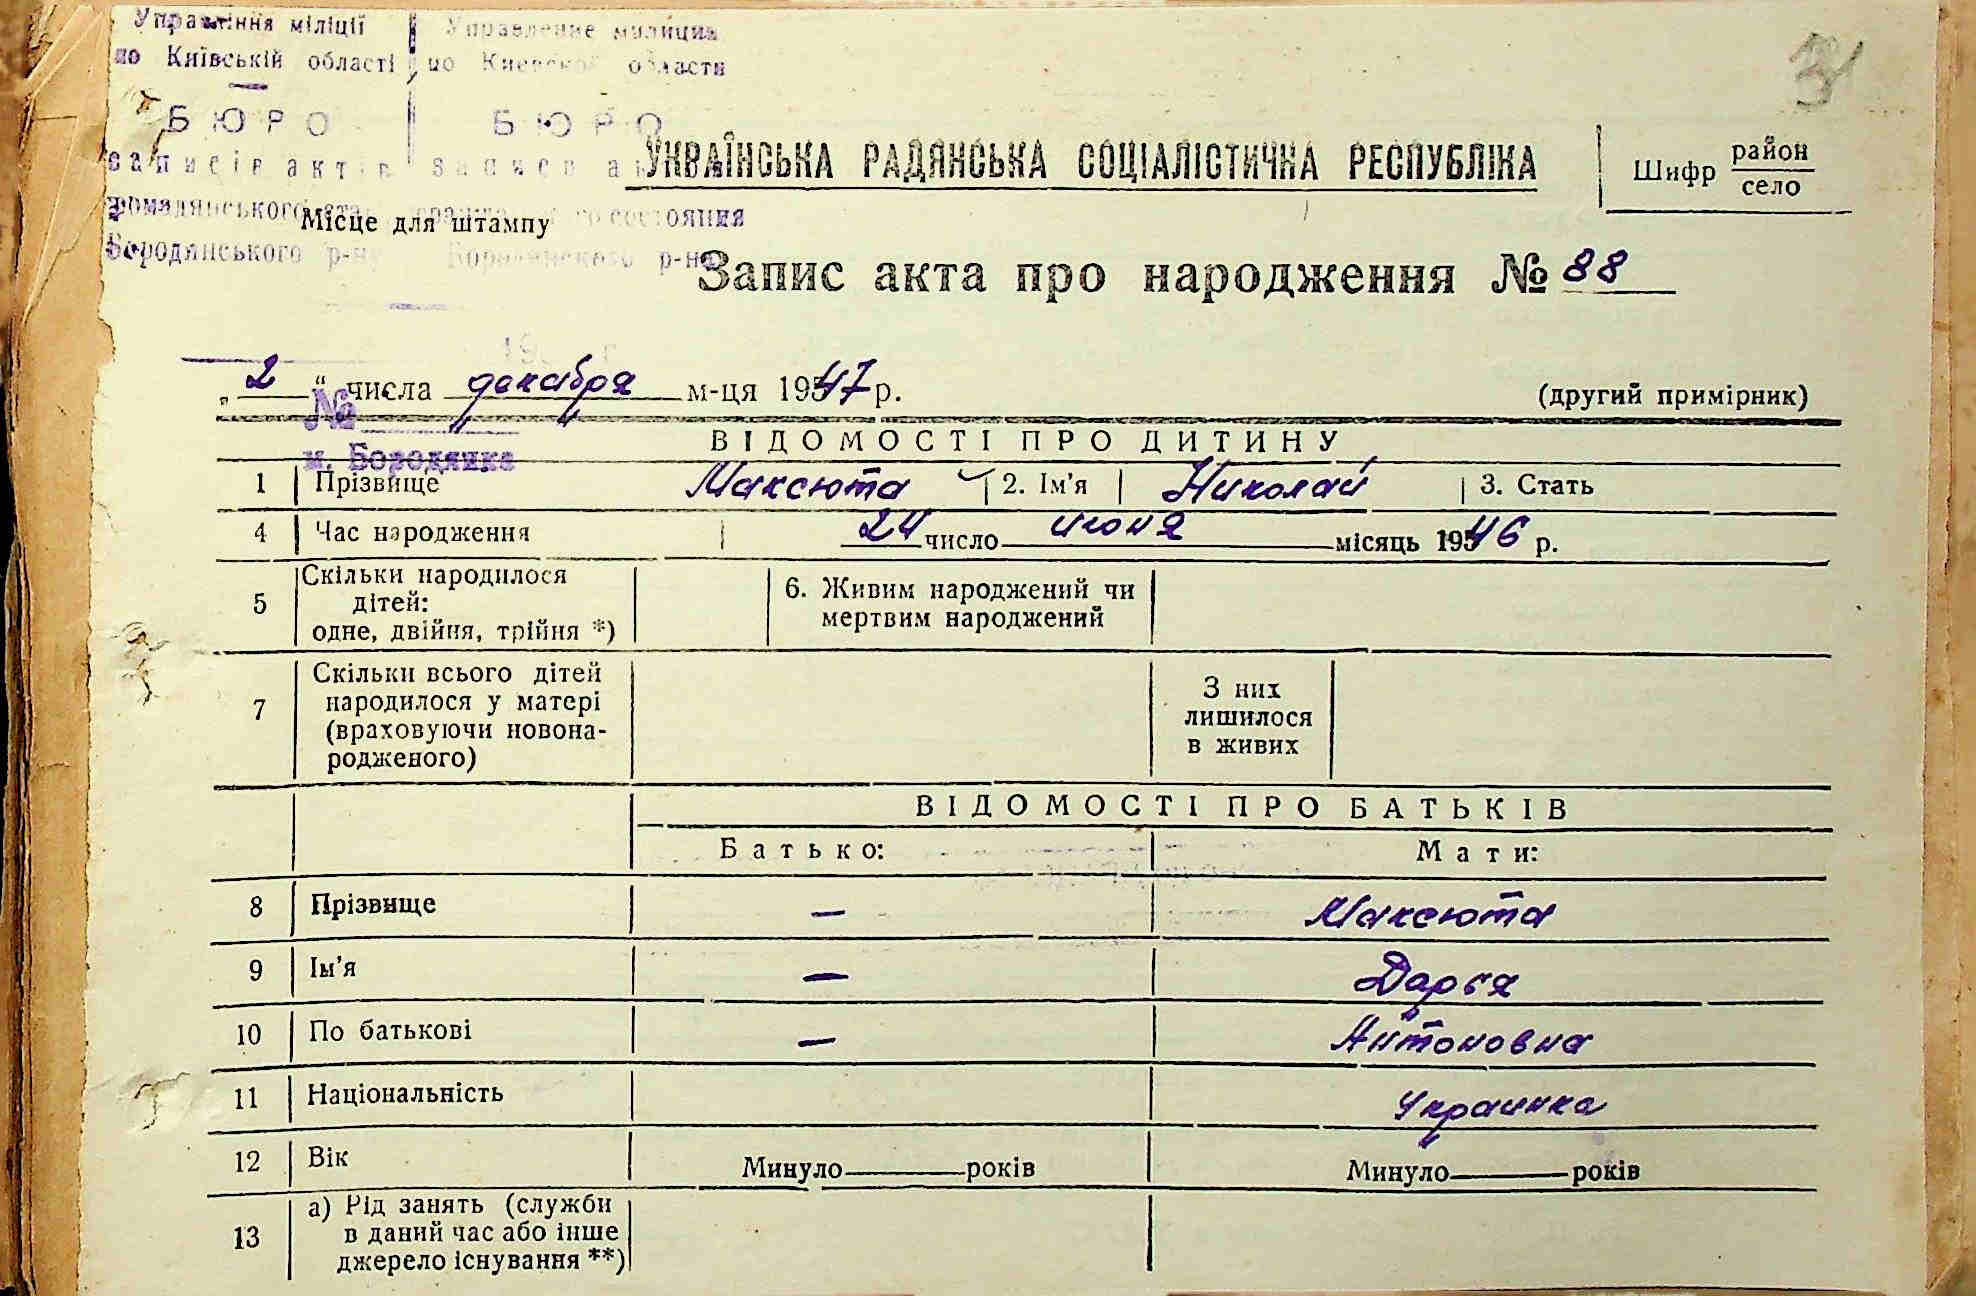 Управління міліції | Управление милиции
по Київській області | по Киевской области
БЮРО | БЮРО
записів актів записей
31
УКРАЇНСЬКА РАДЯНСЬКА СОЦІАЛІСТИЧНА РЕСПУБЛІКА
Шифр район
село
громадянського состояния
Місце для штампу
Бородянського р-ну Бородянского р-на
Запис акта про народження № 88
„ 2 “ числа декабря м-ця 1947 р.
(другий примірник)
№
м. Бородянка
ВІДОМОСТІ ПРО ДИТИНУ
1 Прізвище Максюта 2. Ім'я Николай 3. Стать
4 Час народження 24 число июня місяць 1946 р.
5 Скільки народилося
дітей:
одне, двійня, трійня *)
6. Живим народжений чи
мертвим народжений
7 Скільки всього дітей
народилося у матері
(враховуючи новона-
родженого)
З них
лишилося
в живих
ВІДОМОСТІ ПРО БАТЬКІВ
Батько: Мати:
8 Прізвище — Максюта
9 Ім'я — Дарья
10 По батькові — Антоновна
11 Національність Украинка
12 Вік Минуло років Минуло років
13 а) Рід занять (служби
в даний час або інше
джерело існування **)